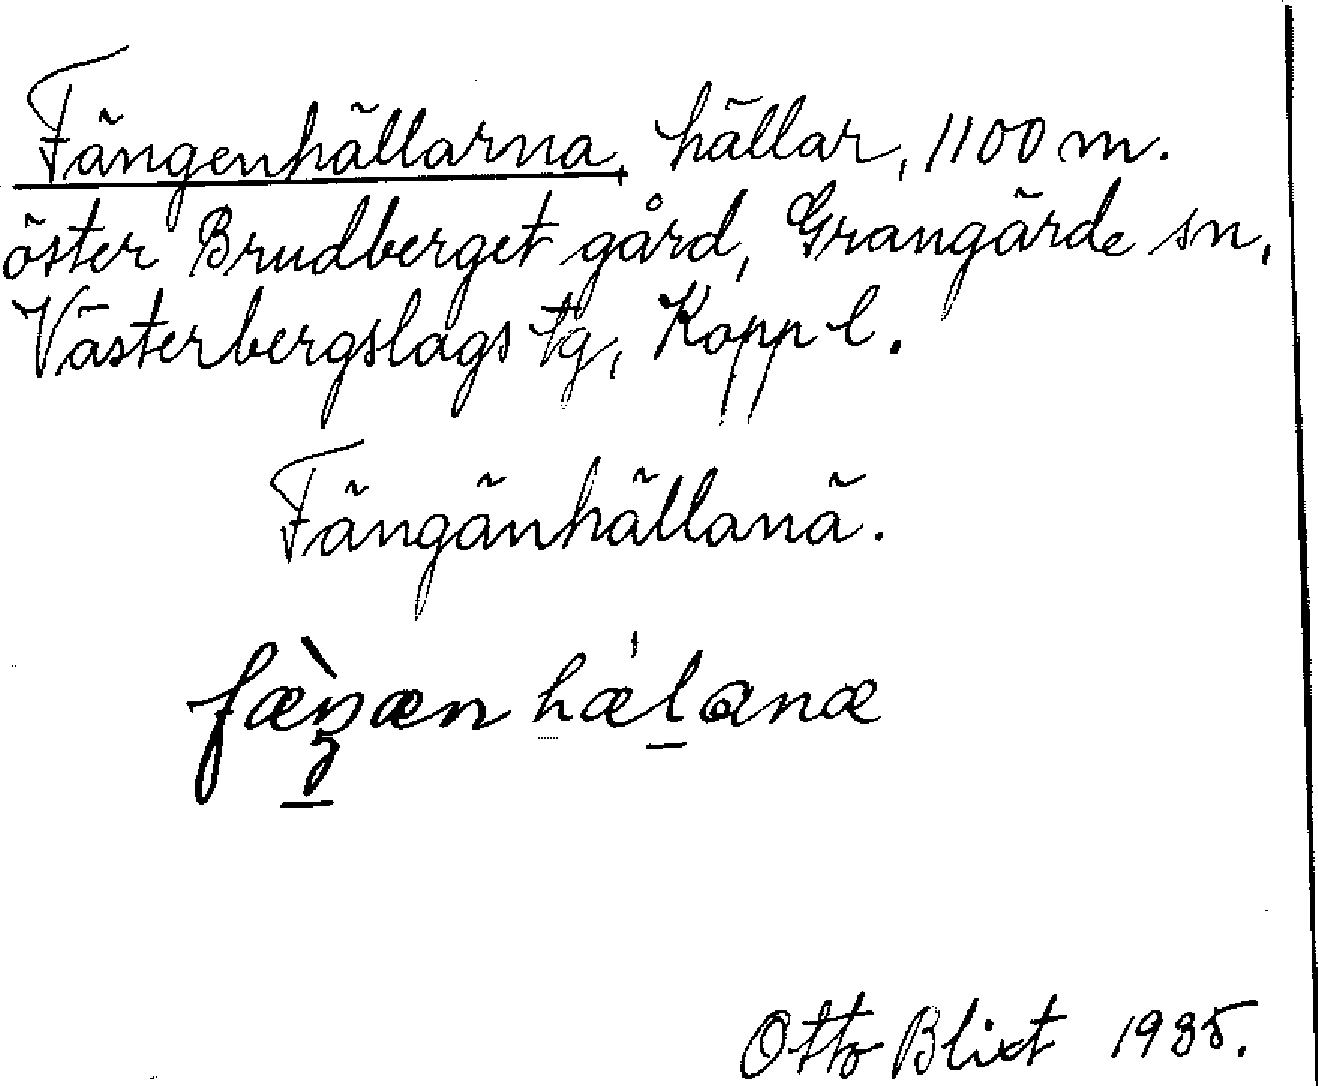 Fängenhällarna, hällar, 1100 m.
öster Brudberget gård, Grangärde sn,
Västerbergslags tg, Kopp l.
Fängänhällanä.
fæ̀ŋæn hæ̍l̠anæ
Otto Blixt 1935.